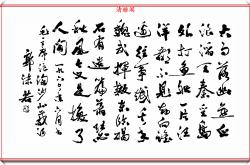 清雅阁
大雨落幽燕白
浪滔天秦皇岛
外打鱼船一片汪
洋都不见知向谁
边往事越千年
魏武挥鞭东临碣
石有遗篇萧瑟
秋风今又是换了
人间 一九六
毛主席浪淘沙北戴河
郭沫若